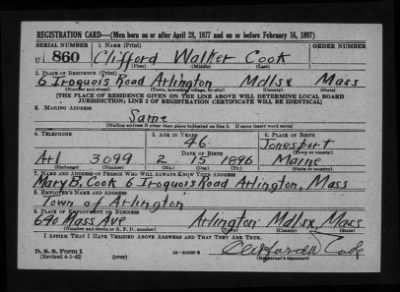 REGISTRATION CARD—(Men born on or after April 28, 1877 and on or before February 16, 1897)
SERIAL NUMBER 1. NAME (Print) ORDER NUMBER
U 860 Clifford Walker Cook
(First) (Middle) (Last)
2. PLACE OF RESIDENCE (Print)
6 Iroquois Road Arlington Mdlsx Mass
(Number and street) (Town, township, village, or city) (County) (State)
[THE PLACE OF RESIDENCE GIVEN ON THE LINE ABOVE WILL DETERMINE LOCAL BOARD
JURISDICTION; LINE 2 OF REGISTRATION CERTIFICATE WILL BE IDENTICAL]
3. MAILING ADDRESS
Same
[Mailing address if other than place indicated on line 2. If same insert word same]
4. TELEPHONE 5. AGE IN YEARS 6. PLACE OF BIRTH
46 Jonesport
DATE OF BIRTH (Town or county)
Arl 3099 2 15 1896 Maine
(Exchange) (Number) (Mo.) (Day) (Yr.) (State or country)
7. NAME AND ADDRESS OF PERSON WHO WILL ALWAYS KNOW YOUR ADDRESS
Mary B. Cook 6 Iroquois Road Arlington, Mass
8. EMPLOYER'S NAME AND ADDRESS
Town of Arlington
9. PLACE OF EMPLOYMENT OR BUSINESS
Mass Ave Arlington Mdlsx Mass
(Number and street or R. F. D. number) (Town) (County) (State)
I AFFIRM THAT I HAVE VERIFIED ABOVE ANSWERS AND THAT THEY ARE TRUE.
D. S. S. Form 1 Clifford W Cook
(Revised 4-1-42) (over) (Registrant's signature)